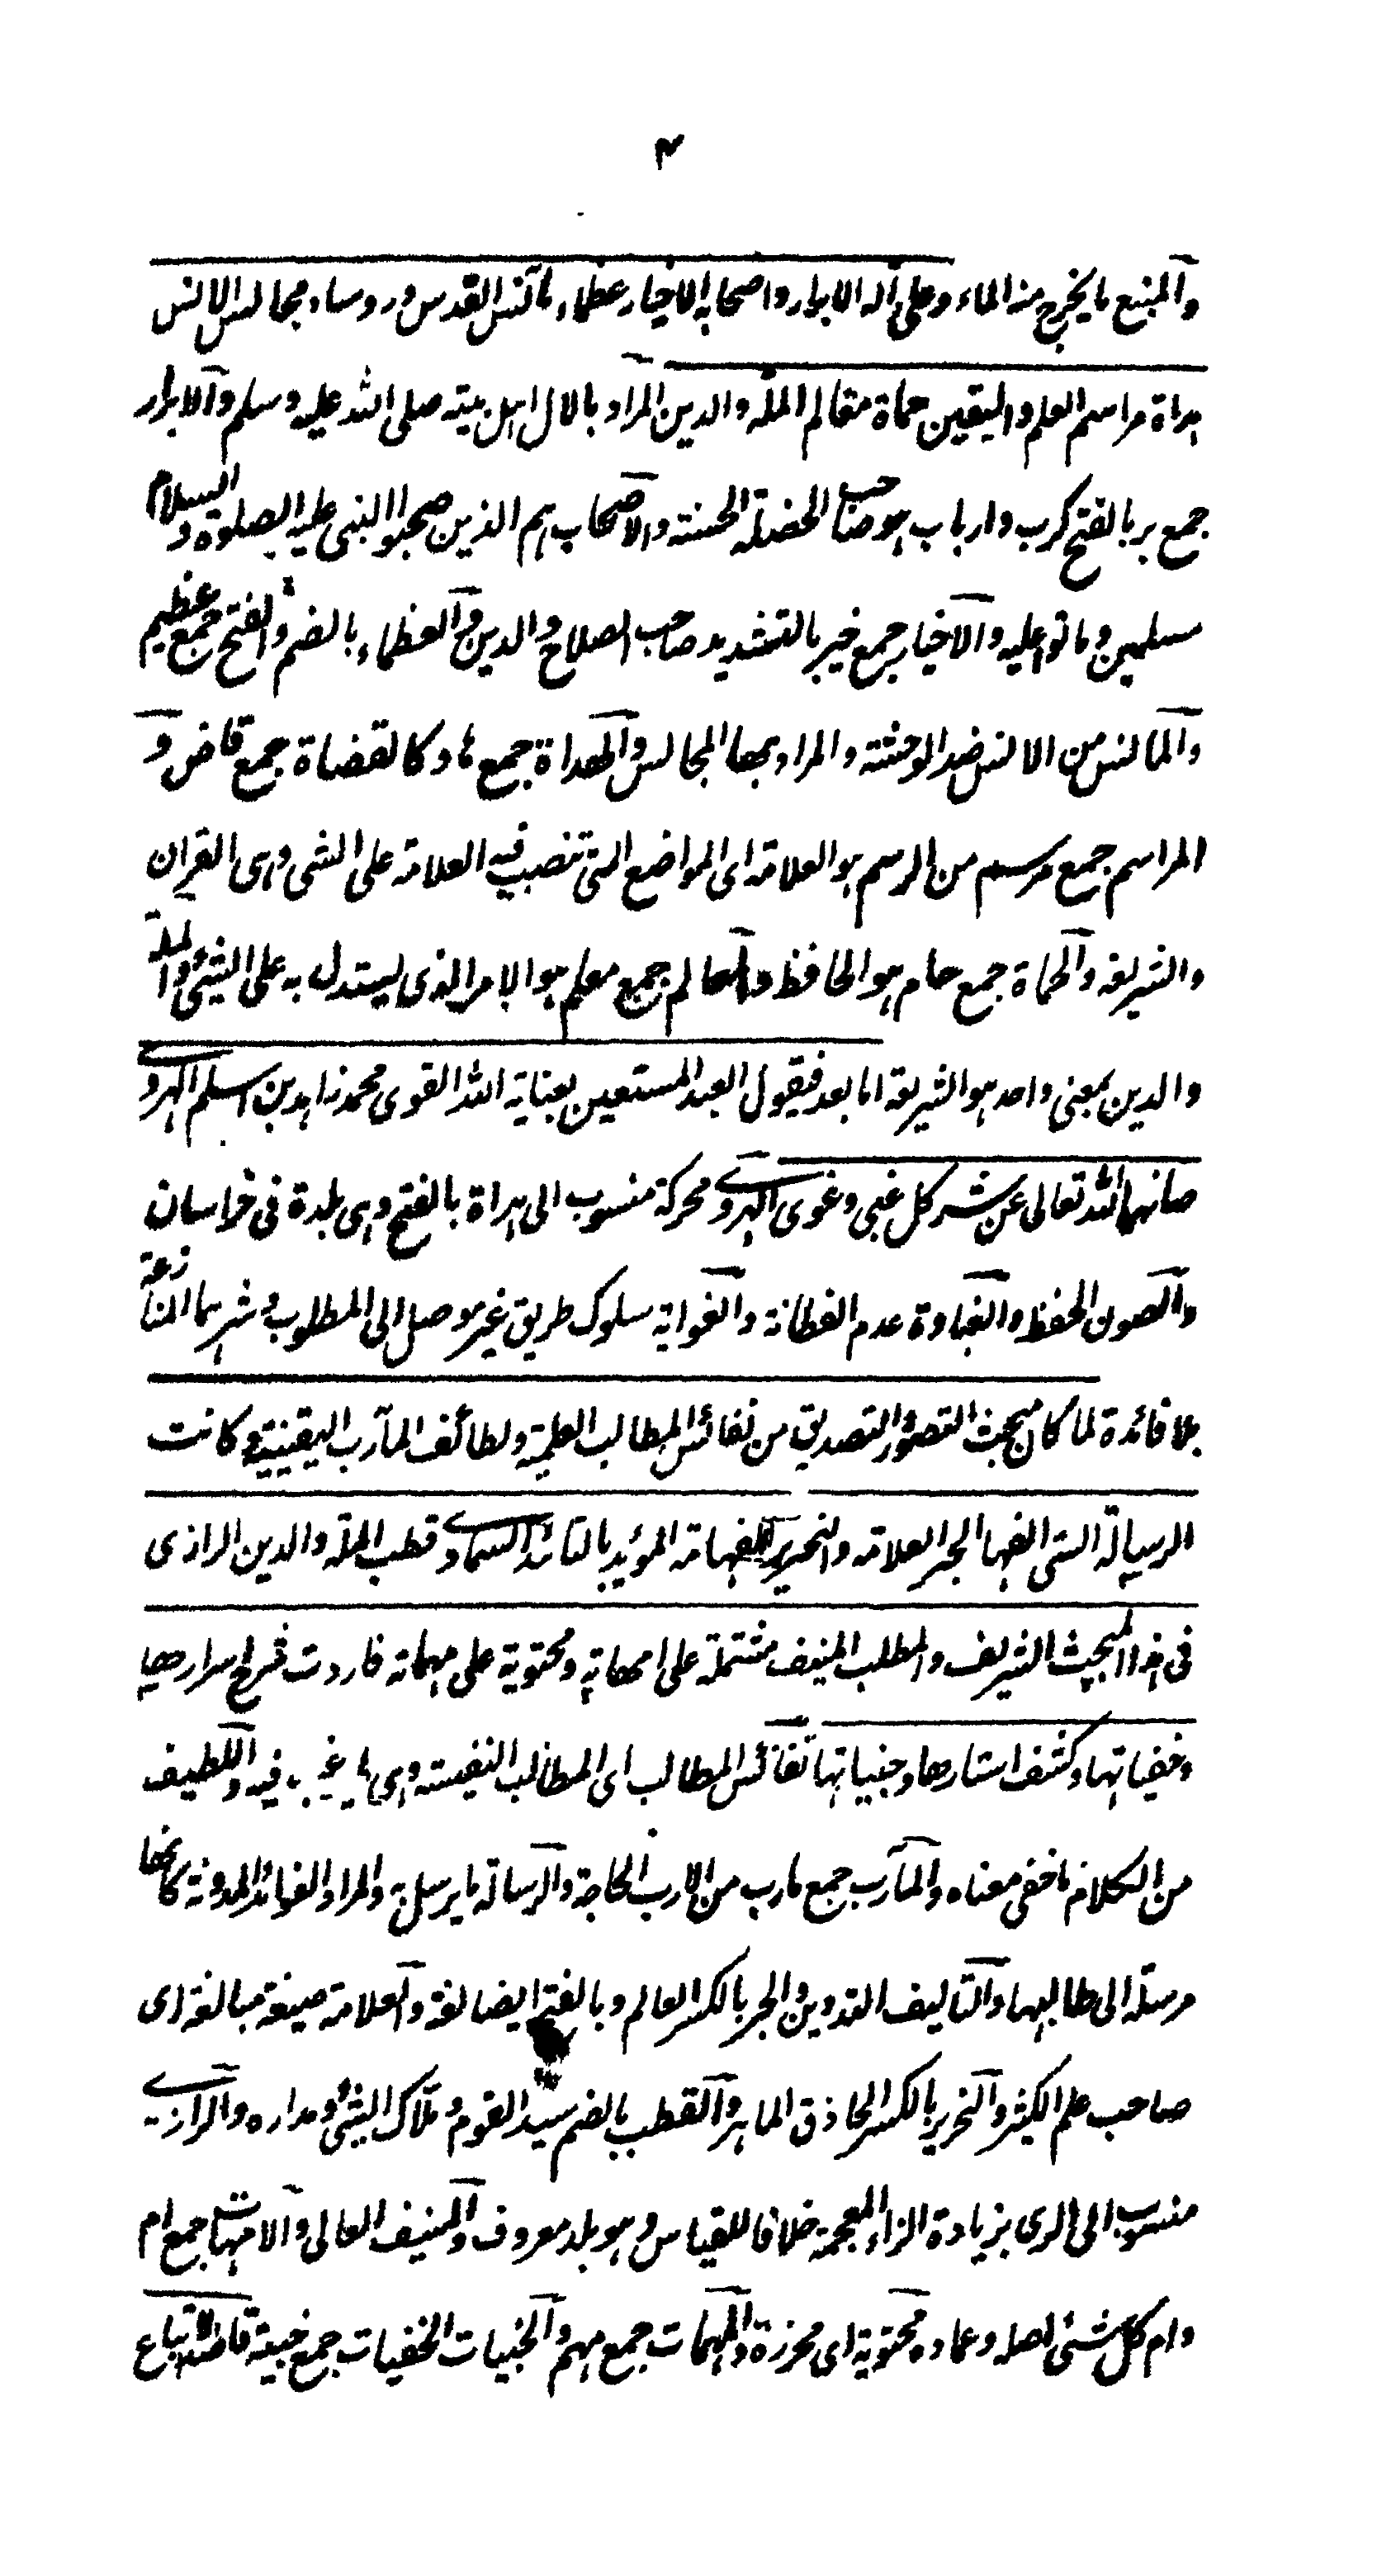 ٣
والمنبع ما يخرج منه الماء وعلى آله الابرار واصحابه الاخيار عظماء مآنس القدس ورؤساء مجالس الانس
هداة مراسم العلم واليقين حماة معالم الملة والدين المراد بالآل اهل بيته صلى الله عليه وسلم والابرار
جمع بر بالفتح كرب وارباب هو صاحب الخصلة الحسنة والاصحاب هم الذين صحبوا النبي عليه الصلوة والسلام
مسلمين وماتوا عليه والاخيار جمع خير بالتشديد صاحب الصلاح والدين والعظماء بالضم والفتح جمع عظيم
والمآنس من الانس ضد الوحشة والمراد بها المجالس والهداة جمع هاد كالقضاة جمع قاض و
المراسم جمع مرسم من الرسم هو العلامة اى المواضع التى تنصب فيه العلامة على الشئ وهى القران
والشريعة والحماة جمع حام هو الحافظ والمعالم جمع معلم هو الامر الذى يستدل به على الشئ والملة
والدين بمعنى واحد هو الشريعة اما بعد فيقول العبد المستعين بعناية الله القوى محمد زاهد بن اسلم الهروے
صانهما الله تعالى عن شر كل غبى وغوى الهروے محركة منسوب الى هراة بالفتح وهى بلدة فى خراسان
والصون الحفظ والغباوة عدم الفطانة والغواية سلوك طريق غير موصل الى المطلوب وشرهما المنازعة
بلا فائدة لما كان مبحث التصور والتصديق من نفائس المطالب العلمية ولطائف المآرب اليقينية وكانت
الرسالة التى الفها الحبر العلامة والنحرير الفهامة المؤيد بالتائيد السماوے قطب الملة والدين الرازى
فى هذا المبحث الشريف والمطلب المنيف مشتملة على امهاته ومحتوية على مهماته فاردت شرح اسرارها
وخفياتها وكشف استارها وخبياتها نفائس المطالب اى المطالب النفيسة وهى ما يرغب فيه واللطيف
من الكلام ما خفى معناه والمآرب جمع مارب من الارب الحاجة والرسالة ما يرسل به والمراد الفوائد المدونة كانها
مرسلة الى طالبيها والتاليف التدوين والحبر بالكسر العالم وبالفتح ايضا لغة والعلامة صيغة مبالغة اى
صاحب علم الكثير والنحرير بالكسر الحاذق الماهر والقطب بالضم سيد القوم وملاك الشئ ومداره والرازے
منسوب الى الرى بزيادة الزاء المعجمة خلافا للقياس وهو بلد معروف والمنيف العالى والامهات جمع ام
وام كل شئ اصله وعماده محتوية اى محرزة والمهمات جمع مهم والخبيات الخفيات جمع خبية قاصدا لاتباع